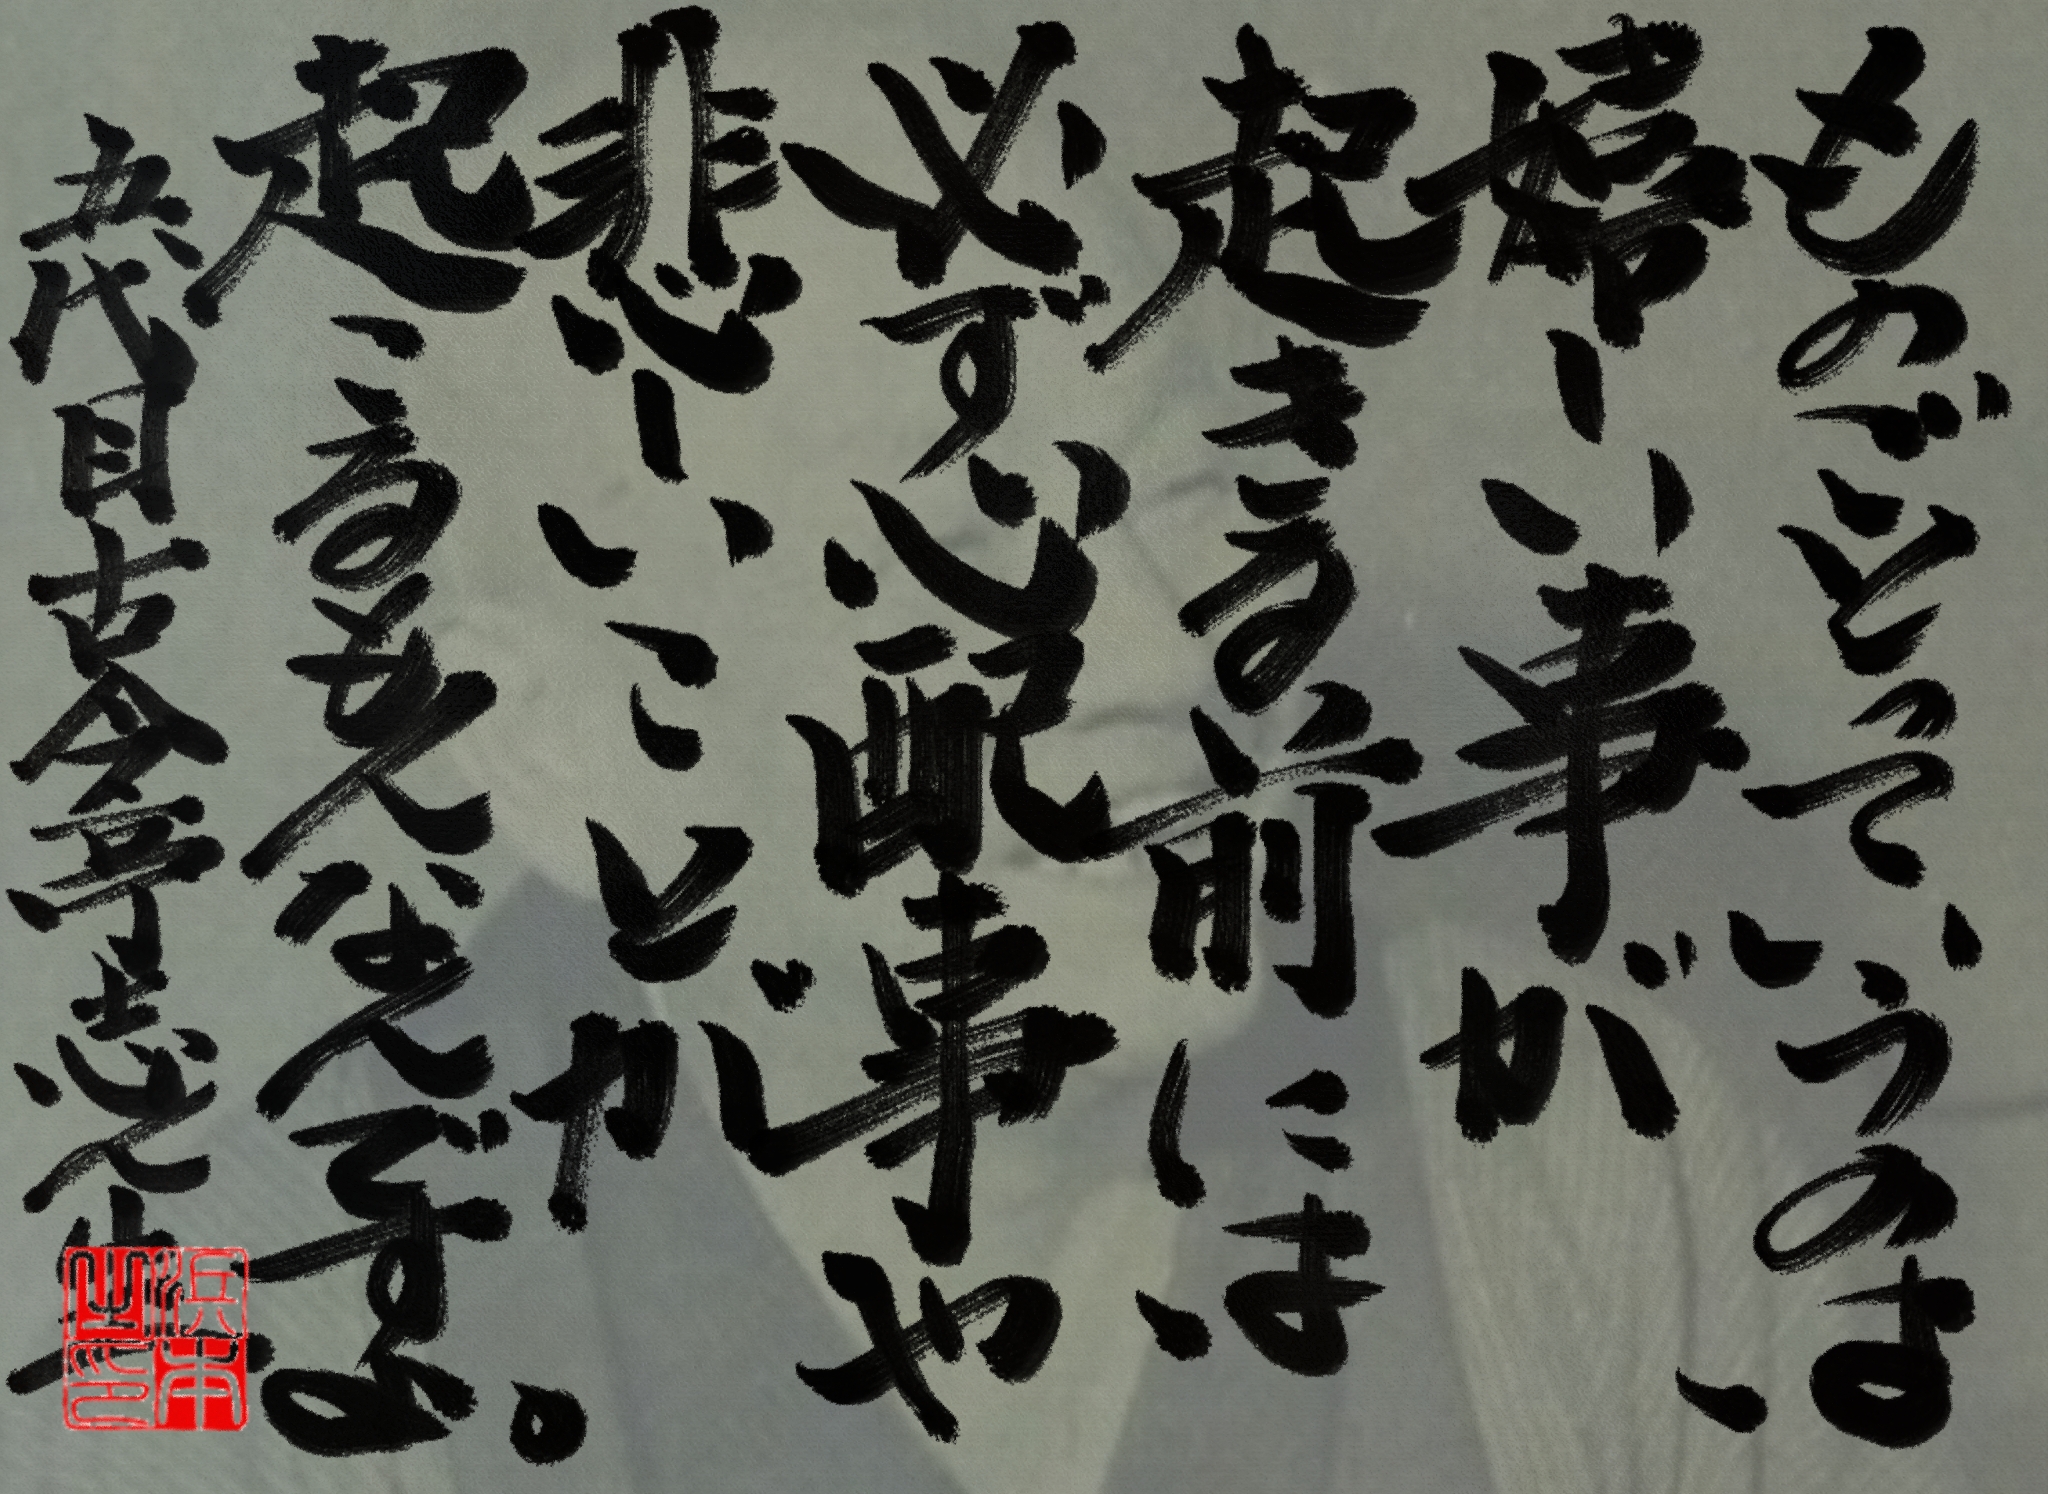 ものごとっていうのは、
嬉しい事が
起きる前には、
必ず心配事や
悲しいことが
起こるもんなんですよ。
五代目古今亭志ん生